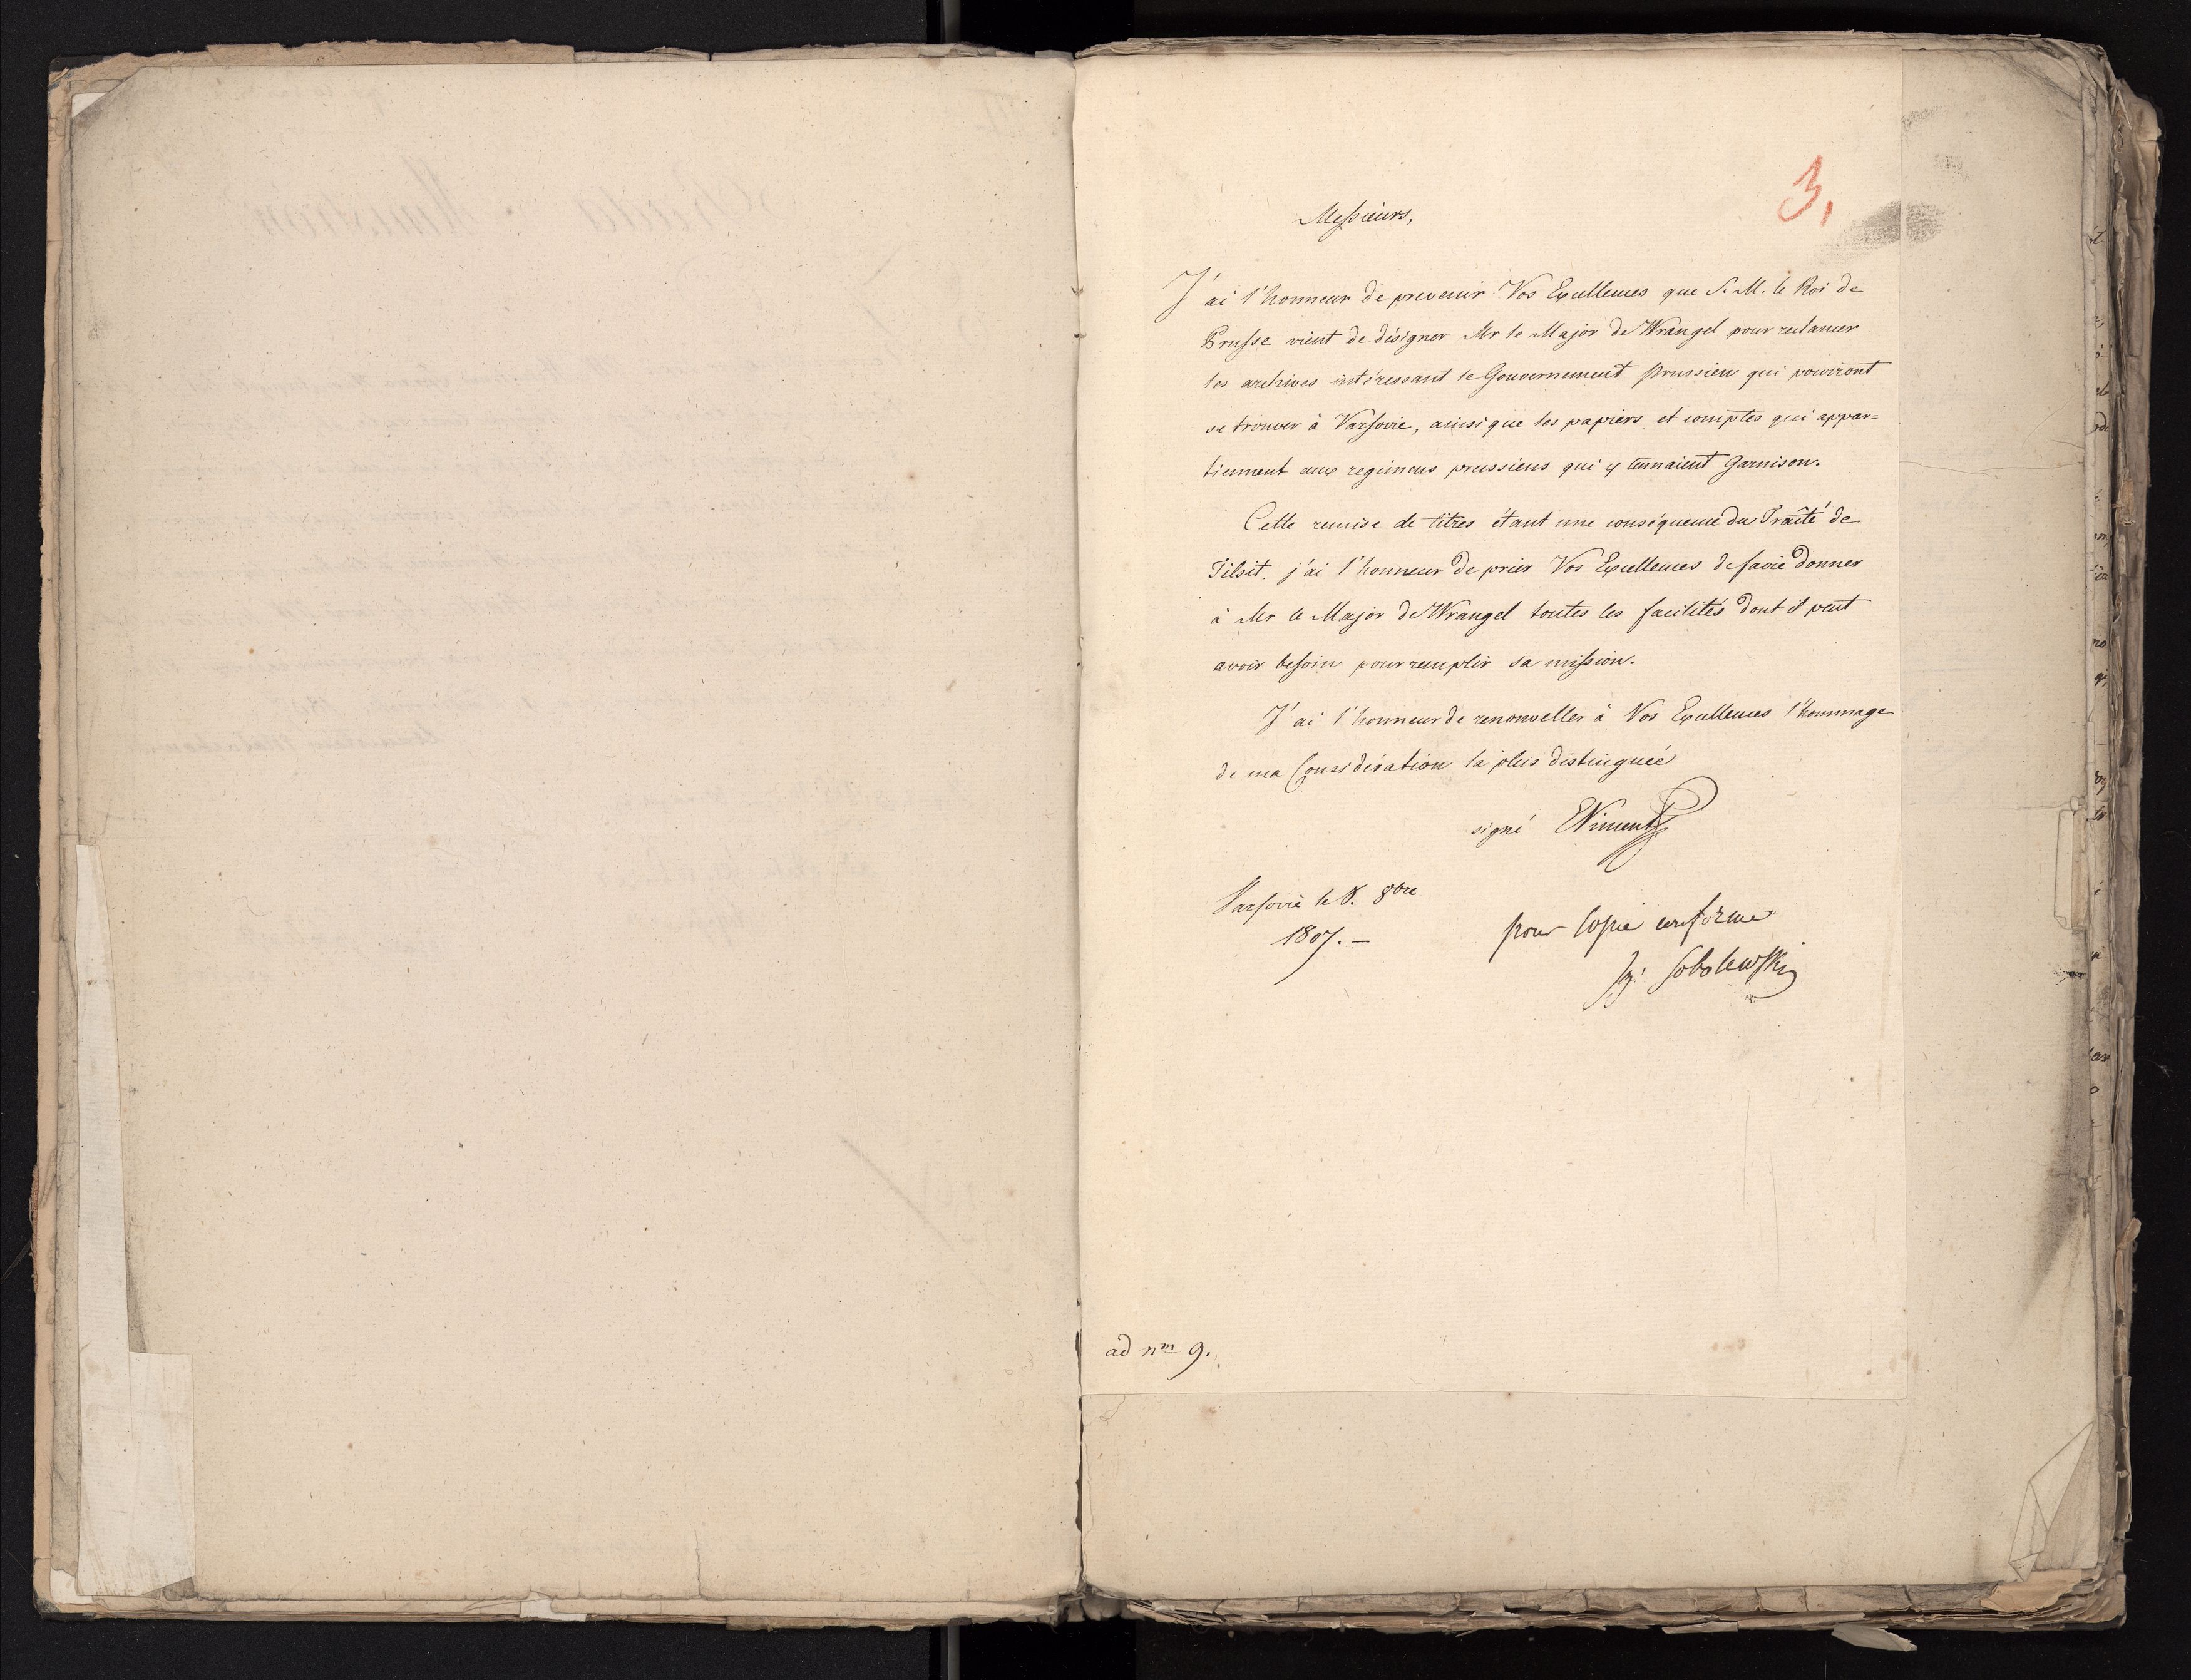 3.
Messieurs,
J'ai l'honneur de prevenir Vos Excellences que S. M. le Roi de
Prusse vient de désigner Mr le Major de Wrangel pour reclamer
les archives intéressant le Gouvernement prussien qui pourront
se trouver à Varsovie, ainsi que les papiers et comptes qui appar=
tiennent aux regimens prussiens qui y tennaient Garnison.
Cette remise de titres étant une conséquence du Traîté de
Tilsit, j'ai l'honneur de prier Vos Excellences de faire donner
à Mr le Major de Wrangel toutes les facilités dont il peut
avoir besoin pour remplir sa mission.
J'ai l'honneur de renouveller à Vos Excellences l'hommage
de ma Considération la plus distinguée
signé
Varsovie le 8. 8bre
1807. —
pour Copie conforme
Sobolewski
ad nm 9.